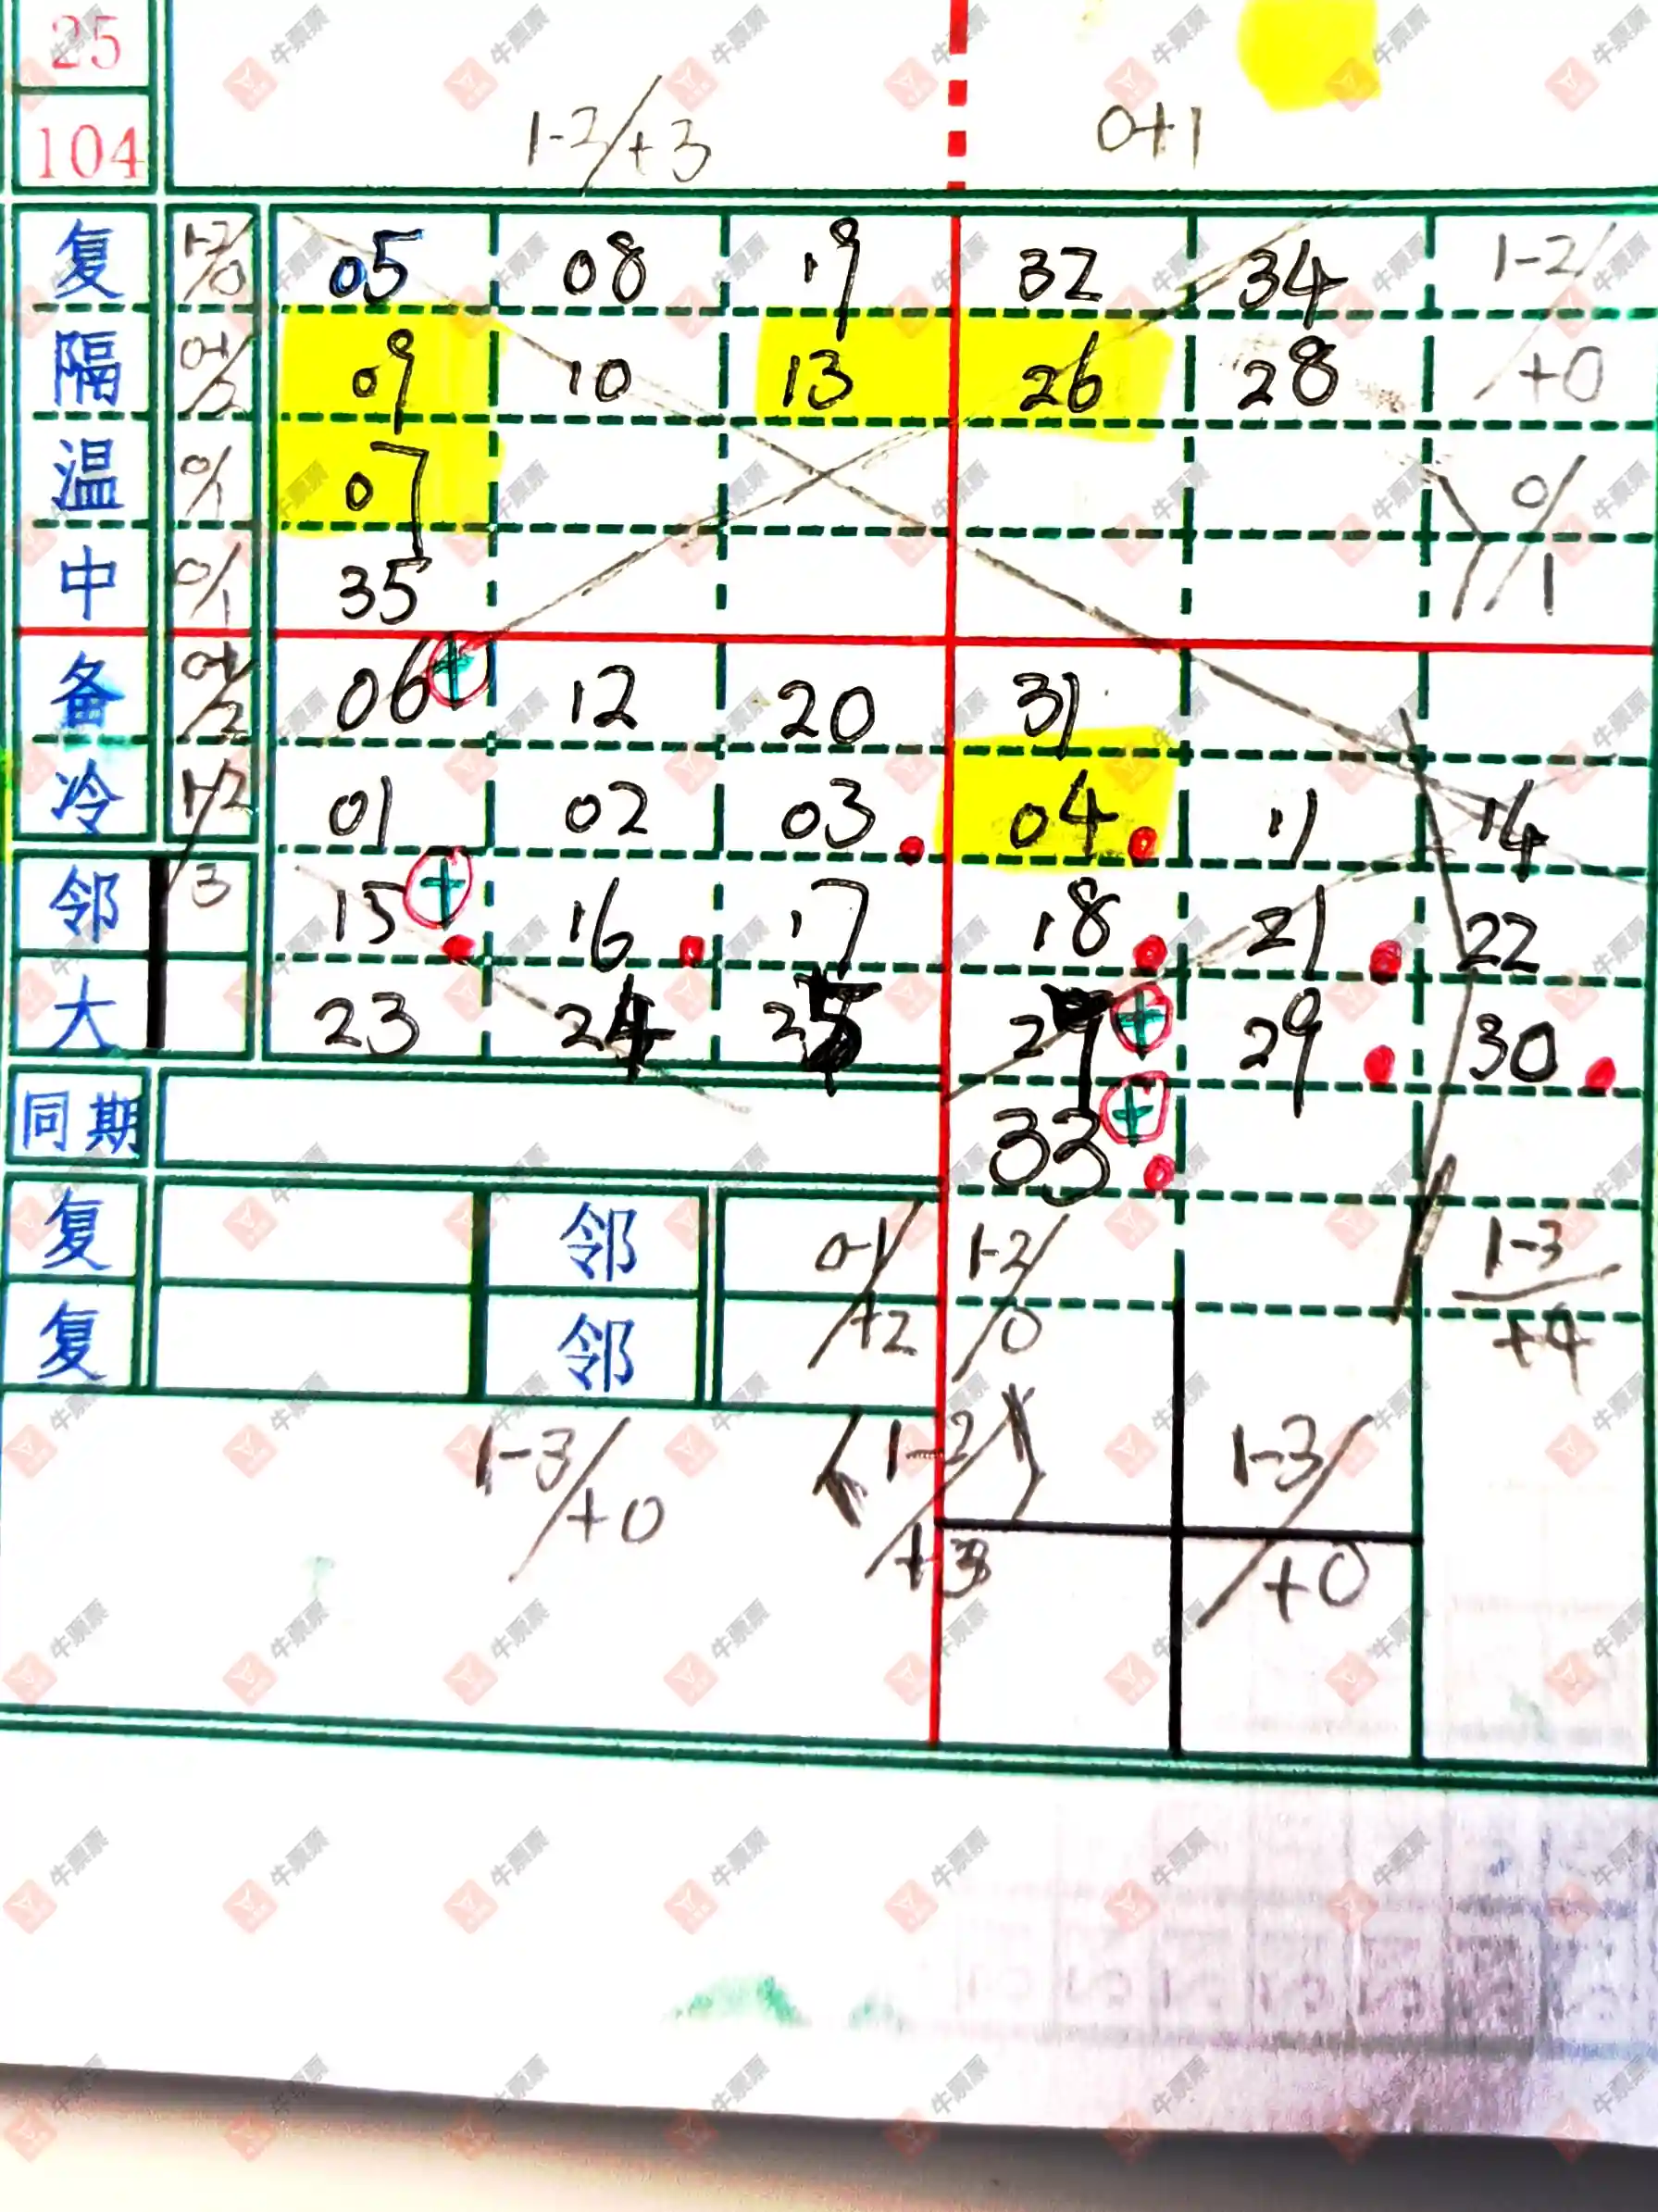 25
104
1-2/+3 0+1
复 1-2/0 05 08 19 32 34 1-2/+0
隔 0-1/2 09 10 13 26 28
温 0/1 07 0/1
中 0/1 35
备 0-1/2 06 12 20 31
冷 1-2/3 01 02 03 04 11 14
邻 15 16 17 18 21 22
大 23 24 25 29 30
同期 33
复 邻 0-1/+2 1-2/0 1-3/+4
复 邻
1-3/+0 (1-2/+3) 1-3/+0
牛票票